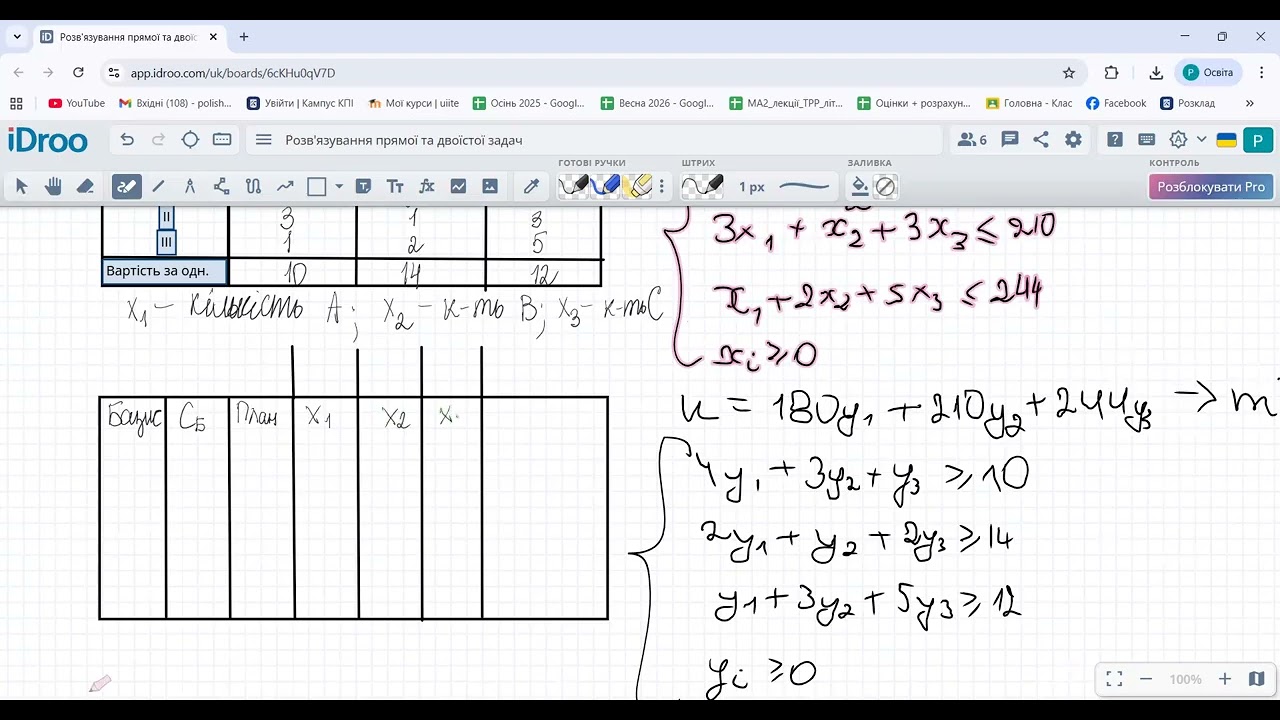 Розв'язування прямої та двоїс
app.idroo.com/uk/boards/6cKHu0qV7D
Освіта
YouTube
Вхідні (108) - polish...
Увійти | Кампус КПІ
Мої курси | uiite
Осінь 2025 - Googl...
Весна 2026 - Googl...
МА2_лекції_ТРР_літ...
Оцінки + розрахун...
Головна - Клас
Facebook
Розклад
iDroo
Розв'язування прямої та двоїстої задач
6
P
ГОТОВІ РУЧКИ
ШТРИХ
ЗАЛИВКА
КОНТРОЛЬ
1 px
Розблокувати Pro
II 3 1 3
III 1 2 5
Вартість за одн. 10 14 12
x₁ – кількість А; x₂ – к-ть В; x₃ – к-ть С
Базис Cб План x1 x2 x
3x₁ + x₂ + 3x₃ ≤ 210
x₁ + 2x₂ + 5x₃ ≤ 244
xi ≥ 0
u = 180y₁ + 210y₂ + 244y₃ → m
4y₁ + 3y₂ + y₃ ≥ 10
2y₁ + y₂ + 2y₃ ≥ 14
y₁ + 3y₂ + 5y₃ ≥ 12
yi ≥ 0
100%